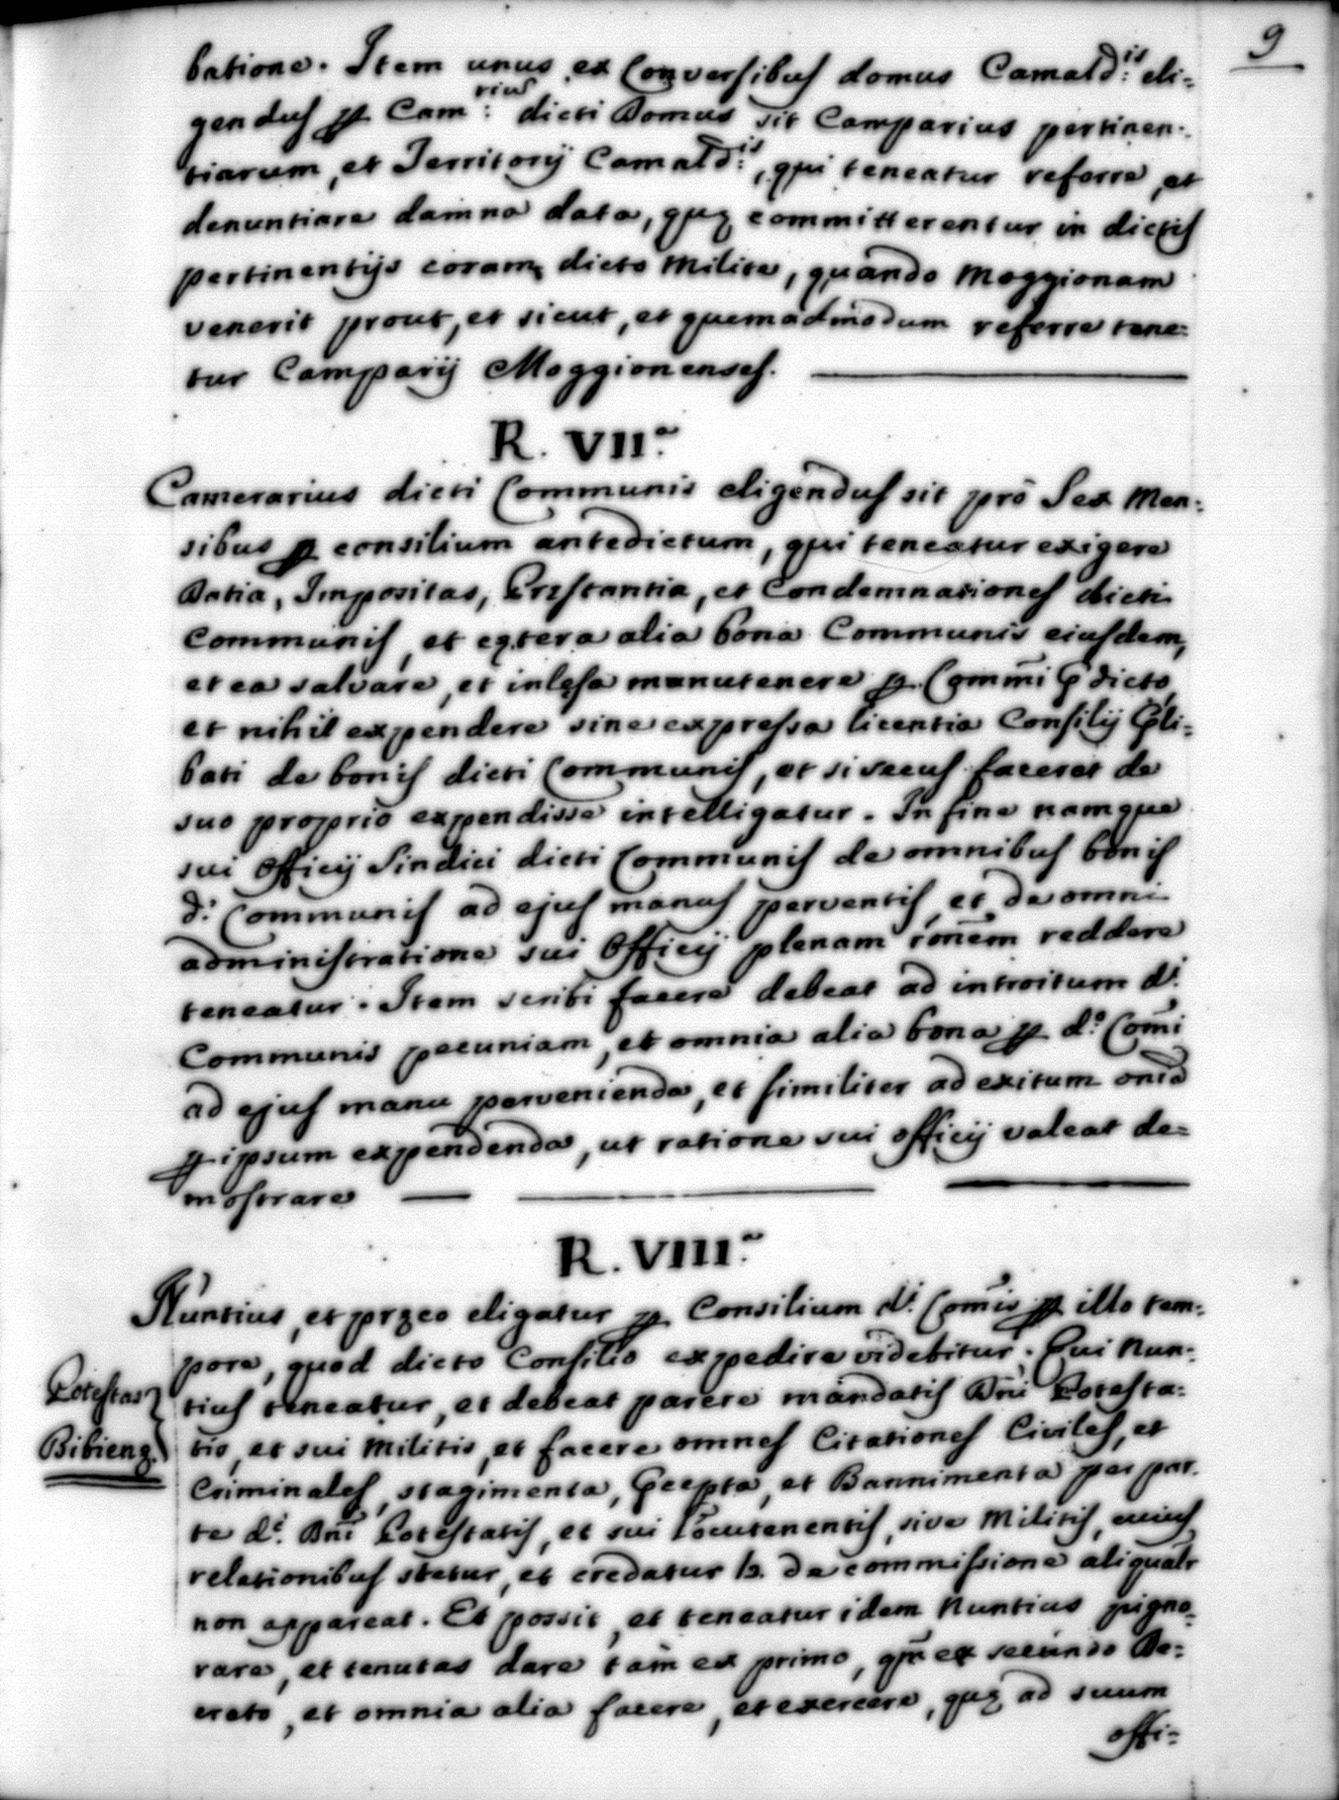 9
batione. Item unus ex Conversibus domus Camald:is eli-
gendus p Cam:rius dicti Domus sit Camparius pertinen-
tiarum, et Territorij Camald:is, qui teneatur referre, et
denuntiare damna data, quę committerentur in dictis
pertinentijs coram dicto Milite, quando Moggionam
venerit prout, et sicut, et quemadmodum referre tene-
tur Camparij Moggionenses.
R. VII.a
Camerarius dicti Communis eligendus sit prò Sex Men-
sibus p consilium antedictum, qui teneatur exigere
Datia, Impositas, Pręstantia, et Condemnationes dicti
Communis, et cętera alia bona Communis eiusdem,
et ea salvare, et inlęsa manutenere p Commi dicto,
et nihil expendere sine expressa licentia Consilij
bati de bonis dicti Communis, et si secus faceret de
suo proprio expendisse intelligatur. In fine namque
sui Officij Sindici dicti Communis de omnibus bonis
d: Communis ad ejus manus perventis, et de omni
administratione sui Officij plenam ronem reddere
teneatur. Item scribi facere debeat ad introitum d.i
Communis pecuniam, et omnia alia bona p d.o Comi
ad ejus manu pervenienda, et similiter ad exitum onia
p ipsum expendenda, ut ratione sui officij valeat de-
mostrare
R. VIII.a
Nuntius, et pręco eligatur p Consilium d.i Comis p illo tem-
pore, quod dicto Consilio expedire videbitur. Qui Nun-
Potestas
tius teneatur, et debeat parere mandatis Dni Potesta-
Bibienę.
tis, et sui Militis, et facere omnes Citationes Civiles, et
Criminales, stagimenta, et Bannimenta per par-
te d.i Dni Potestatis, et sui Locutenentis, sive Militis, cuius
relationibus stetur, et credatur de commissione aliqualr
non appareat. Et possit, et teneatur idem Nuntius pigno-
rare, et tenutas dare tam ex primo, qm ex secundo De-
creto, et omnia alia facere, et exercere, quę ad suum
offi-